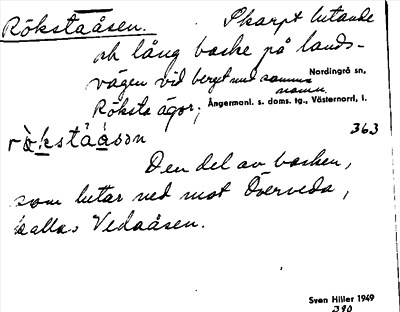 Rökstaåsen. Skarpt lutande
och lång backe på lands-
vägen vid berget med samma
namn
Nordingrå sn,
Röksta ägor;
Ångermanl. s. doms. tg., Västernorrl. l.
rö̀kstaåsən
363
Den del av backen,
som lutar ned mot Överveda,
kallas Vedaåsen.
Sven Hiller 1949
390